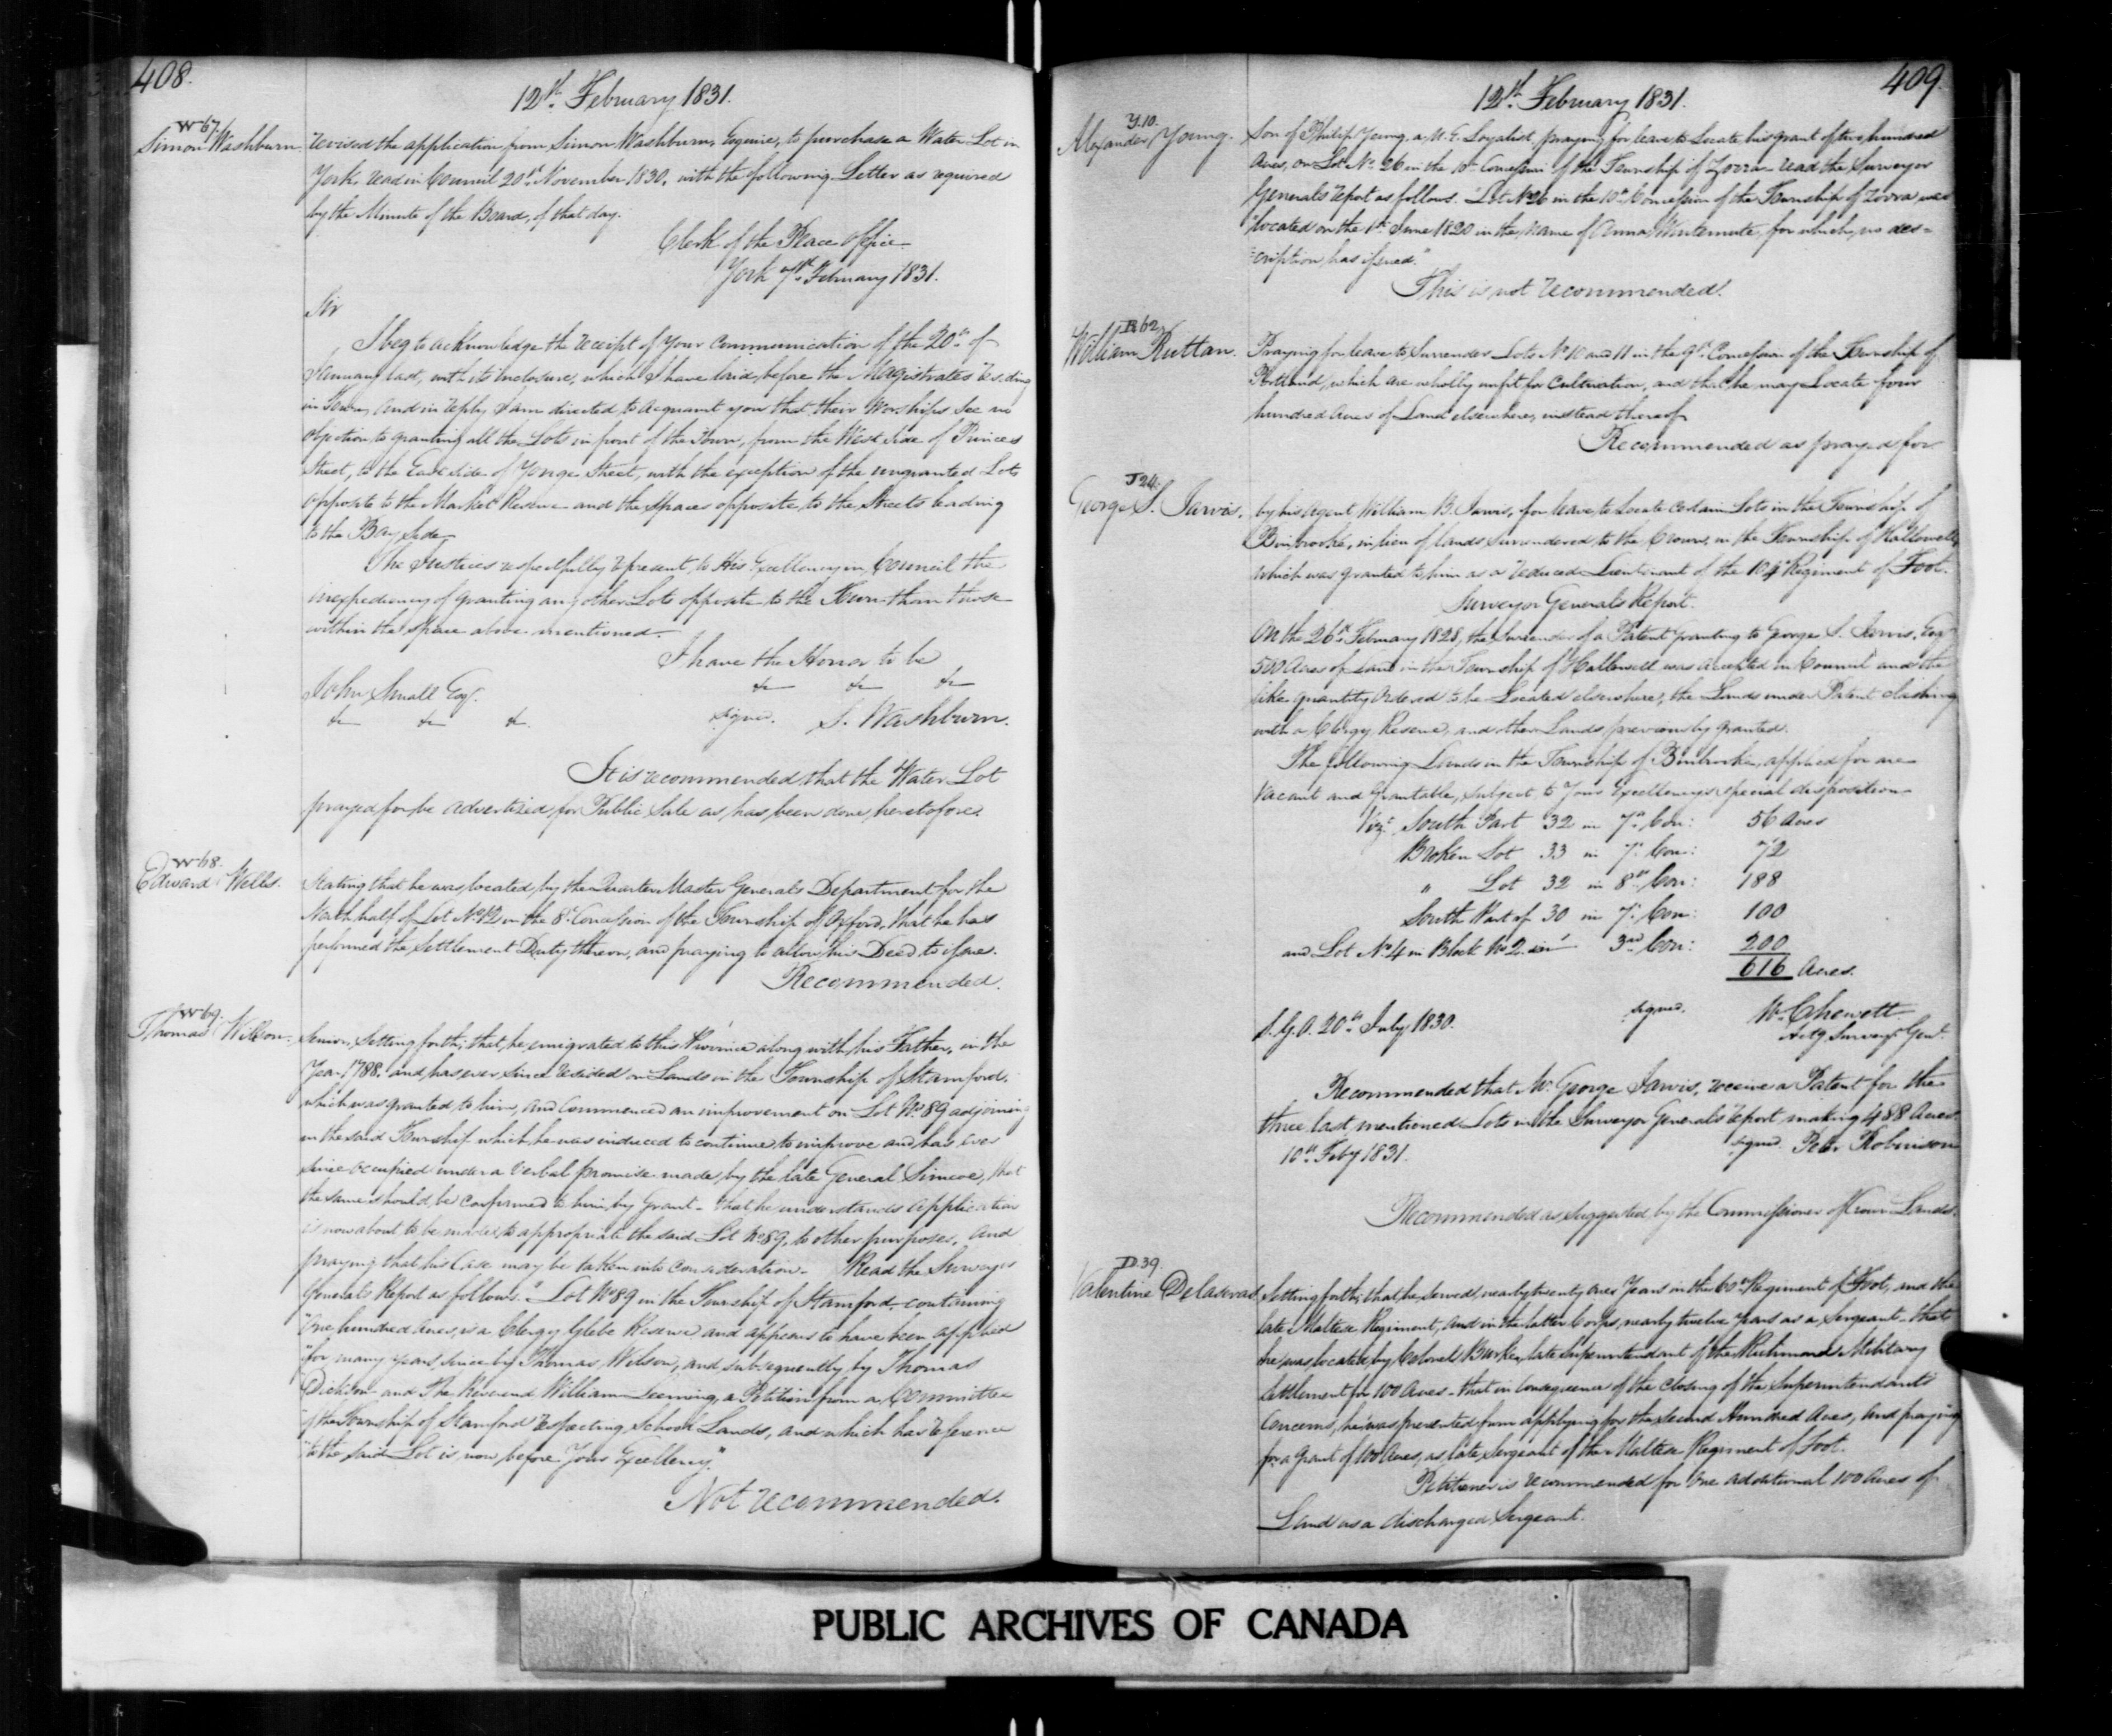 408.
12th February 1831.
W 67.
Simon Washburn.
revised the application from Simon Washburn, Esquire, to purchase a Water Lot in
York, read in Council 20th November 1830, with the following Letter as required
by the Minute of the Board, of that day.
Clerk of the Peace Office
York 7th February 1831.
Sir
I beg to acknowledge the receipt of Your Communication of the 20th of
January last, with its inclosure, which I have laid before the Magistrates residing
in Town, and in reply I am directed to acquaint you that their Worships see no
objection to granting all the Lots in front of the Town, from the West Side of Princes
Street, to the East side of Yonge Street, with the exception of the ungranted Lots
opposite to the Market Reserve and the spaces opposite to the Streets leading
to the Bay side.
The Justices respectfully represent to His Excellency in Council the
inexpediency of granting any other Lots opposite to the Town than those
within the space above mentioned.
I have the Honor to be
&c &c &c
John Small Esqr.
&c &c &c.
signed. S. Washburn.
It is recommended that the Water Lot
prayed for be advertized for Public Sale as has been done heretofore.
W 68.
Edward Wells.
Stating that he was located by the Quarter Master General's Department for the
North half of Lot No 12 in the 8th Concession of the Township of Oxford, that he has
performed the Settlement Duty thereon, and praying to allow his Deed to issue.
Recommended.
W 69.
Thomas Wilson.
Senior, Setting forth; that, he emigrated to this Province along with his Father, in the
Year 1788. and has ever since resided on Lands in the Township of Stamford.
which was granted to him, and Commenced an improvement on Lot No 89 adjoining
in the said Township which he was induced to continue to improve and has ever
since occupied under a Verbal promise made by the late General Simcoe, that
the same should be confirmed to him by grant - that he understands application
is now about to be made to appropriate the said Lot No 89, to other purposes, and
praying that his Case may be taken into Consideration. Read the Surveyor
General's Report as follows. "Lot No 89 in the Township of Stamford containing
"One hundred Acres, is a Clergy Glebe Reserve and appears to have been applied
"for many years since by Thomas Wilson, and subsequently by Thomas
"Dickson and The Reverend William Leeming, a Petition from a Committee
"of the Township of Stamford respecting School Lands, and which has reference
"to the said Lot is now before Your Excellency."
Not recommended.
409.
12th February 1831.
Y. 10.
Alexander Young.
Son of Philip Young, a U. E. Loyalist, praying for leave to Locate his grant of two hundred
Acres, on Lot No 26 in the 10th Concession of the Township of Zorra - read the Surveyor
General's report as follows. "Lot No 26 in the 10th Concession of the Township of Zorra was
"located on the 1st June 1820 in the name of Anna Wintemute, for which, no des=
"cription has issued."
This is not recommended.
R 62.
William Ruttan.
Praying for leave to Surrender Lots No 10 and 11 in the 9th Concession of the Township of
Portland, which are wholly unfit for Cultivation, and that he may Locate four
hundred Acres of Land elsewhere, instead thereof.
Recommended as prayed for
J 24.
George S. Jarvis.
by his Agent William B. Jarvis, for leave to Locate Certain Lots in the Township of
Binbrooke, in lieu of lands surrendered to the Crown, in the Township of Hallowell,
which was granted to him as a reduced Lieutenant of the 104th Regiment of Foot.
Surveyor General's Report.
On the 26th February 1828, the Surrender of a Patent Granting to George S. Jarvis, Esqr
500 Acres of Land in the Township of Hallowell was accepted in Council and the
like quantity Ordered to be Located elsewhere, the Lands under Patent clashing
with a Clergy Reserve, and other Lands previously granted.
The following Lands in the Township of Binbrooke, applied for are
vacant and grantable, subject to Your Excellency's special disposition
Vizt. South Part 32 in 7th Con: 56 Acres
Broken Lot 33 in 7th Con: 72
" Lot 32 in 8th Con: 188
South Part of 30 in 7th Con: 100
and Lot No 4 in Block No 2 in 3rd Con: 200
616 Acres.
S. G. O. 20th July 1830.
signed. W. Chewett
Actg. Surveyr. Genl.
Recommended that Mr George Jarvis, receive a Patent for the
three last mentioned Lots in the Surveyor General's report making 488 Acres
10th Feby 1831.
signed. Peter Robinson
Recommended as suggested by the Commissioner of Crown Lands.
D. 39.
Valentine
Setting forth; that, he served nearly twenty one Years in the 60th Regiment of Foot, and the
late Maltese Regiment, and in the latter Corps, nearly twelve years as a Sergeant - that
he was located by Colonel Burke, late Superintendant of the Richmond Military
Settlement for 100 Acres - that in consequence of the closing of the Superintendants
Concerns, he was prevented from applying for the second Hundred Acres, and praying
for a grant of 100 Acres, as late Sergeant of the Maltese Regiment of Foot.
Petitioner is recommended for One additional 100 Acres of
Land as a discharged Sergeant.
PUBLIC ARCHIVES OF CANADA